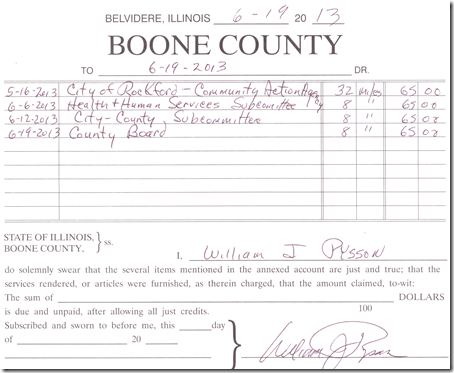 BELVIDERE, ILLINOIS 6-19 20 13
BOONE COUNTY
TO 6-19-2013 DR.
5-16-2013 City of Rockford - Community Action Agcy 32 miles 65 00
6-6-2013 Health & Human Services Subcommittee 8 " 65 00
6-12-2013 City-County, Subcommittee 8 " 65 00
6-19-2013 County Board 8 " 65 00
STATE OF ILLINOIS, } ss.
BOONE COUNTY,
I. William J Pysson
do solemnly swear that the several items mentioned in the annexed account are just and true; that the
services rendered, or articles were furnished, as therein charged, that the amount claimed, to-wit:
The sum of DOLLARS
100
is due and unpaid, after allowing all just credits.
Subscribed and sworn to before me, this day
of 20
William J Pysson